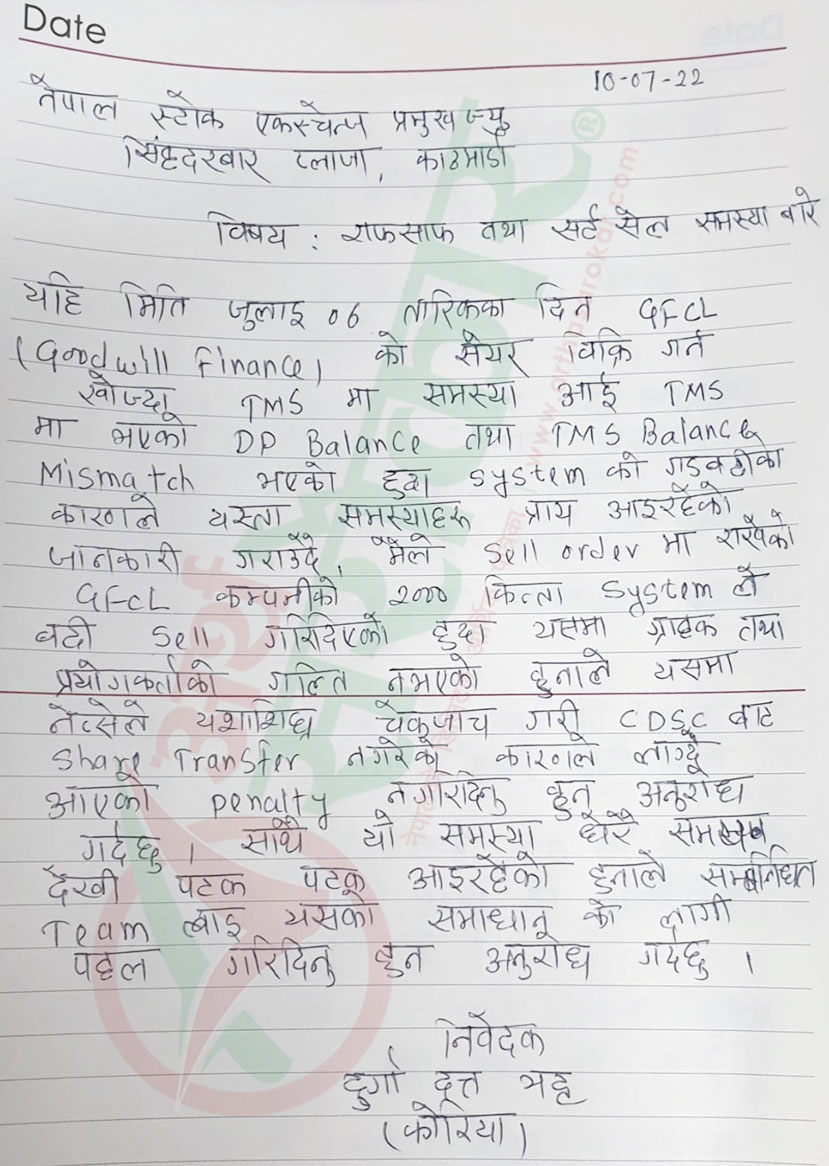 Date
10-07-22
नेपाल स्टोक एकस्चेन्ज प्रमुखज्यु
सिंहदरबार प्लाजा, काठमाडौ
विषय : राफसाफ तथा सर्ट सेल समस्या बारे
यहि मिति जुलाइ 06 तारिकका दिन GFCL
(Goodwill Finance) को सेयर विक्रि गर्न
खोज्दा TMS मा समस्या आई TMS
मा भएको DP Balance तथा TMS Balance
Mismatch भएको हुदा system को गडवडीका
कारणले यस्ता समस्याहरु प्राय आइरहेको
जानकारी गराउँदै, मैले Sell order मा राखेको
GFCL कम्पनीको २००० कित्ता System ले
बढी Sell गरिदिएको हुदा यसमा ग्राहक तथा
प्रयोगकर्ताको गल्ति नभएको हुनाले यसमा
नेप्सेले यशाशिघ्र चेकजाच गरी CDSC बाट
Share Transfer नगरेको कारणले लाग्दै
आएको penalty नगरिदिनु हुन अनुरोध
गर्दछु । साथै यो समस्या धेरै समय
देखी पटक पटक आइरहेको हुनाले सम्बन्धित
Team लाइ यसको समाधान को लागी
पहल गरिदिनु हुन अनुरोध गर्दछु ।
निवेदक
दुर्गा दत्त भट्ट
(कोरिया)
अर्थ
सरोकार®
www.arthasarokar.com